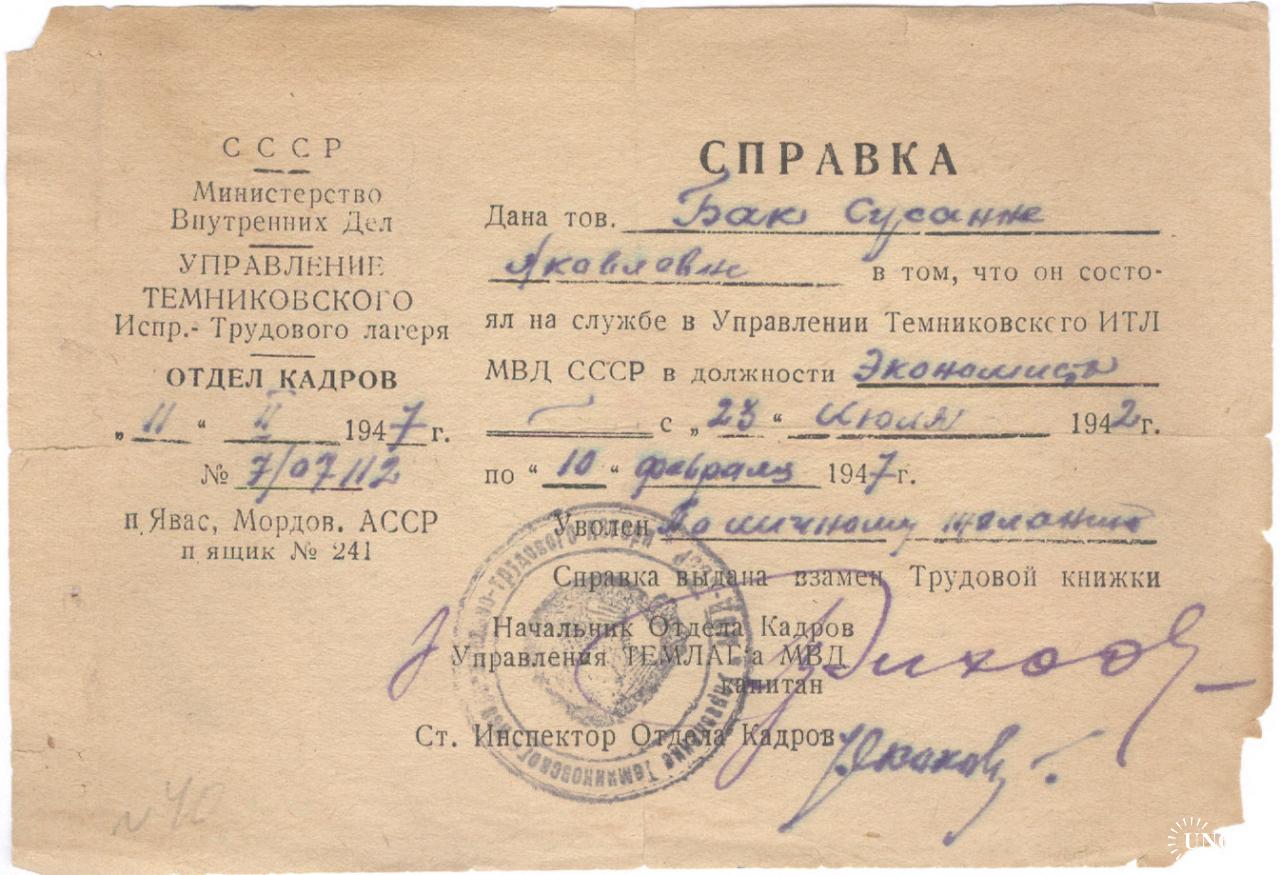 СССР
Министерство
Внутренних Дел
УПРАВЛЕНИЕ
ТЕМНИКОВСКОГО
Испр.- Трудового лагеря
ОТДЕЛ КАДРОВ
„11" II 1947 г.
№ 7/07112
п. Явас, Мордов. АССР
п ящик № 241
СПРАВКА
Дана тов. Бак Сусанне
Яковлевне в том, что он состо-
ял на службе в Управлении Темниковского ИТЛ
МВД СССР в должности Экономиста
с „23" Июля 1942 г.
по "10" февраля 1947 г.
Уволен По личному желанию
Справка выдана взамен Трудовой книжки
Начальник Отдела Кадров
Управления ТЕМЛАГ'а МВД
капитан
Ст. Инспектор Отдела Кадров
Управление Темниковского
трудового лагеря
№ 40
UN